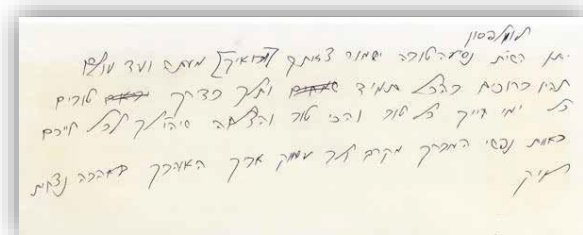 יתן השי"ת נסיעה טובה ישמור צאתך [ובואיך] מעתה ועד עולם
תהיו ברוכים בהכל תמיד ולך בדרך טובים
כל ימי חייך כל טוב והכי טוב והצלחה שיהי' לך לכל חייכם
כאות נפשי המברך מקרב לב עמוק אביך האוהבך באהבה נצחית